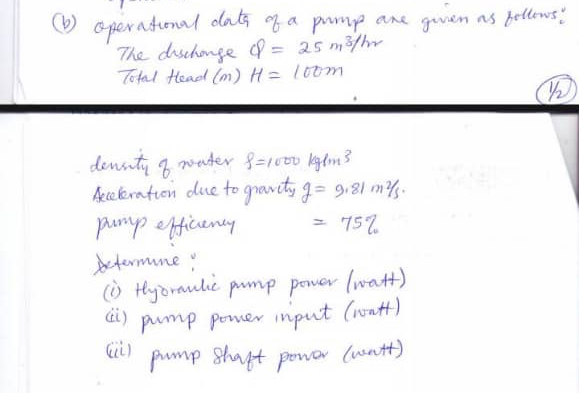 (b) operational data of a pump are given as follows:
The discharge Q = 25 m³/hr
Total Head (m) H = 100m
1/2
density of water ρ=1000 kg/m3
Acceleration due to gravity g = 9.81 m²/s.
pump efficiency = 75%
Determine:
(i) Hydraulic pump power (watt)
(ii) pump power input (watt)
(iii) pump shaft power (watt)